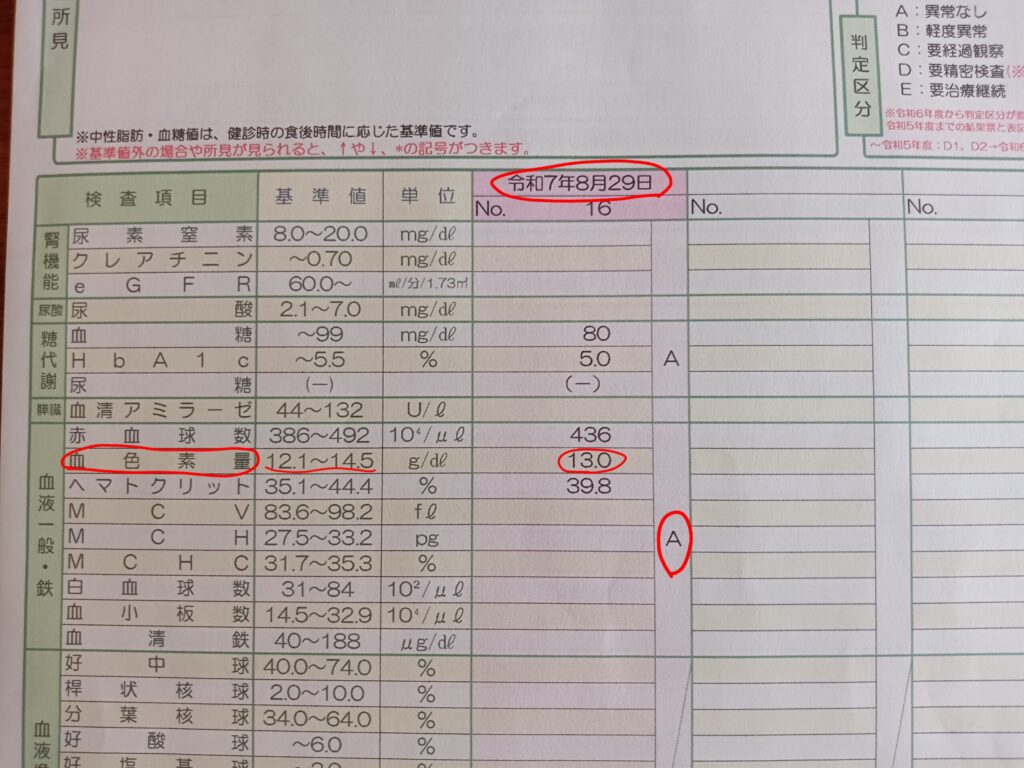 所見
※中性脂肪・血糖値は、健診時の食後時間に応じた基準値です。
※基準値外の場合や所見が見られると、↑や↓、*の記号がつきます。
判定区分
A：異常なし
B：軽度異常
C：要経過観察
D：要精密検査(※
E：要治療継続
※令和6年度から判定区分が
令和5年度までの結果票と表記
～令和5年度：D1、D2→令和6
検査項目 基準値 単位 令和7年8月29日
No. 16 No. No.
腎機能
尿素窒素 8.0～20.0 mg/dℓ
クレアチニン ～0.70 mg/dℓ
eGFR 60.0～ mℓ/分/1.73㎡
尿酸 尿酸 2.1～7.0 mg/dℓ
糖代謝
血糖 ～99 mg/dℓ 80
HbA1c ～5.5 % 5.0 A
尿糖 (－) (－)
膵臓 血清アミラーゼ 44～132 U/ℓ
血液一般・鉄
赤血球数 386～492 10⁴/μℓ 436
血色素量 12.1～14.5 g/dℓ 13.0
ヘマトクリット 35.1～44.4 % 39.8
MCV 83.6～98.2 fℓ
MCH 27.5～33.2 pg A
MCHC 31.7～35.3 %
白血球数 31～84 10²/μℓ
血小板数 14.5～32.9 10⁴/μℓ
血清鉄 40～188 μg/dℓ
血液
好中球 40.0～74.0 %
桿状核球 2.0～10.0 %
分葉核球 34.0～64.0 %
好酸球 ～6.0 %
好塩基球 %